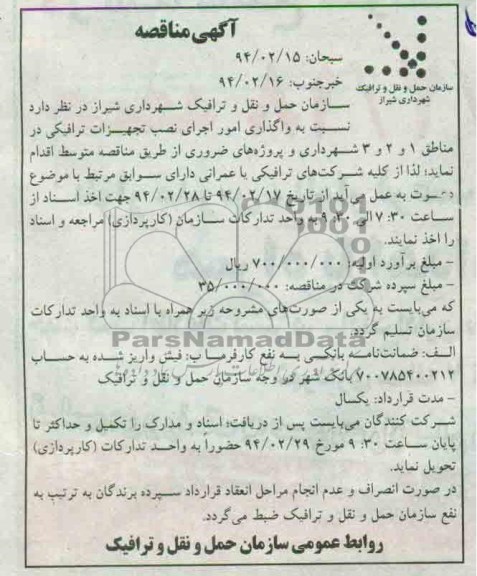 آگهی مناقصه
سبحان: ۹۴/۰۲/۱۵
خبرجنوب: ۹۴/۰۲/۱۶
سازمان حمل و نقل و ترافیک
شهرداری شیراز
سازمان حمل و نقل و ترافیک شهرداری شیراز در نظر دارد
نسبت به واگذاری امور اجرای نصب تجهیزات ترافیکی در
مناطق ۱ و ۲ و ۳ شهرداری و پروژه‌های ضروری از طریق مناقصه متوسط اقدام
نماید؛ لذا از کلیه شرکت‌های ترافیکی یا عمرانی دارای سوابق مرتبط با موضوع
دعوت به عمل می‌آید از تاریخ ۹۴/۰۲/۱۷ تا ۹۴/۰۲/۲۸ جهت اخذ اسناد از
ساعت ۷:۳۰ الی ۹:۳۰ به واحد تدارکات سازمان (کارپردازی) مراجعه و اسناد
را اخذ نمایند.
- مبلغ برآورد اولیه: ۷۰۰/۰۰۰/۰۰۰ ریال
- مبلغ سپرده شرکت در مناقصه: ۳۵/۰۰۰/۰۰۰
که می‌بایست به یکی از صورت‌های مشروحه زیر همراه با اسناد به واحد تدارکات
سازمان تسلیم گردد.
ParsNamadData
الف: ضمانت‌نامه بانکی به نفع کارفرما ب: فیش واریز شده به حساب
۷۰۰۷۸۵۴۰۰۲۱۲ بانک شهر در وجه سازمان حمل و نقل و ترافیک
- مدت قرارداد: یکسال
شرکت کنندگان می‌بایست پس از دریافت؛ اسناد و مدارک را تکمیل و حداکثر تا
پایان ساعت ۹:۳۰ مورخ ۹۴/۰۲/۲۹ حضوراً به واحد تدارکات (کارپردازی)
تحویل نماید.
در صورت انصراف و عدم انجام مراحل انعقاد قرارداد سپرده برندگان به ترتیب به
نفع سازمان حمل و نقل و ترافیک ضبط می‌گردد.
روابط عمومی سازمان حمل و نقل و ترافیک